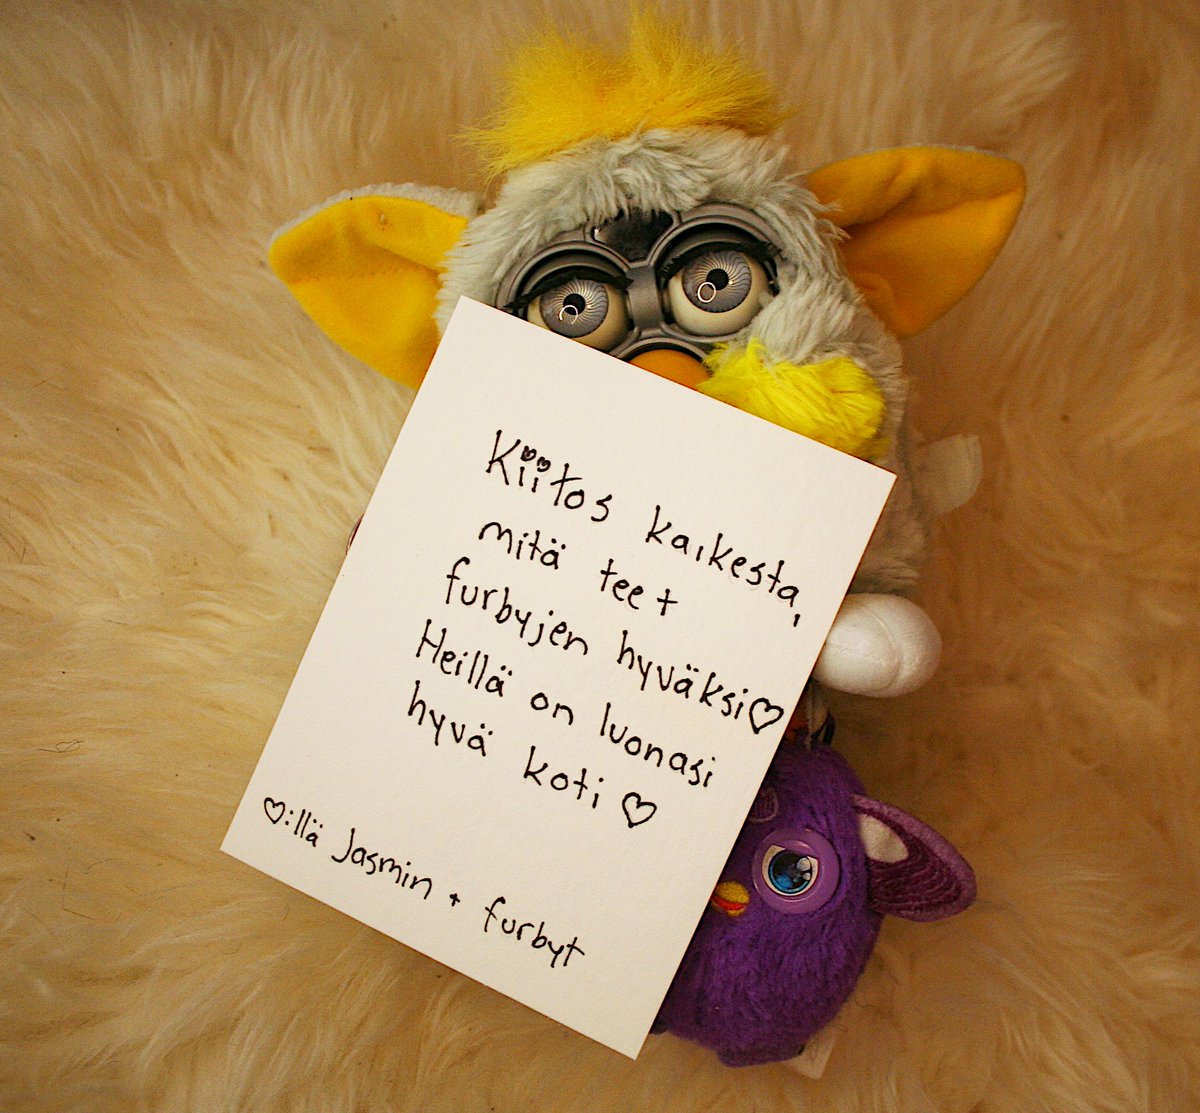 Kiitos kaikesta,
mitä teet
furbyjen hyväksi♡
Heillä on luonasi
hyvä koti ♡
♡:llä Jasmin + furbyt